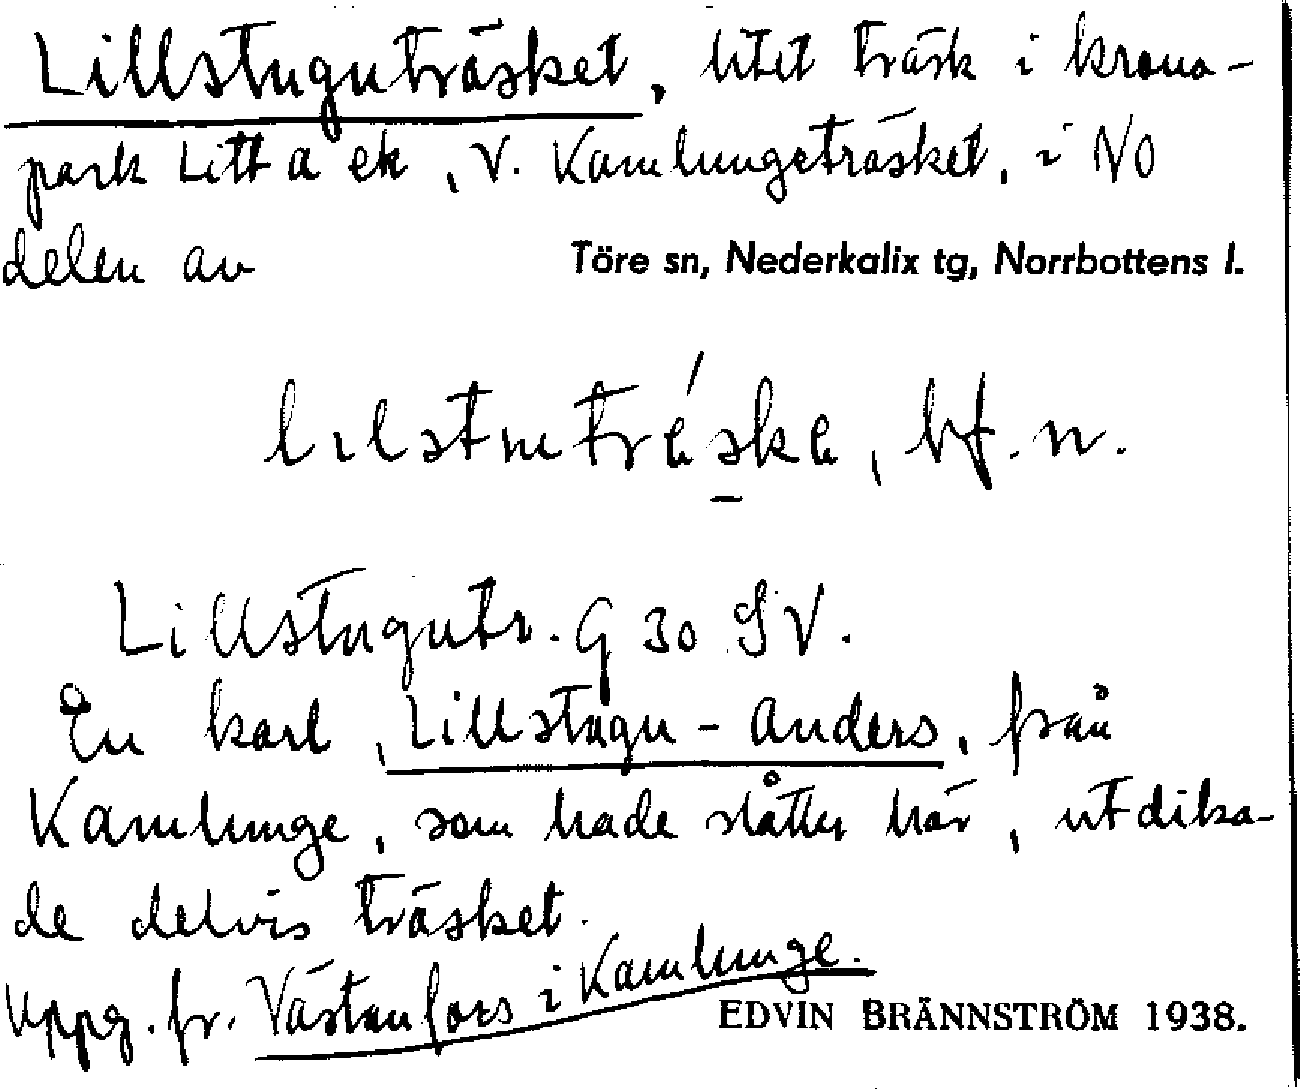 Lillstuguträsket, litet träsk i krono-
park Litt a ek, V. Kamlungeträsket, i NO
delen av Töre sn, Nederkalix tg, Norrbottens l.
bf. n.
Lillstugutr. G 30 SV.
En karl, Lillstugu-Anders, från
Kamlunge, som hade slåtter här, utdika-
de delvis träsket.
Uppg. fr. Västanfors i Kamlunge.
EDVIN BRÄNNSTRÖM 1938.